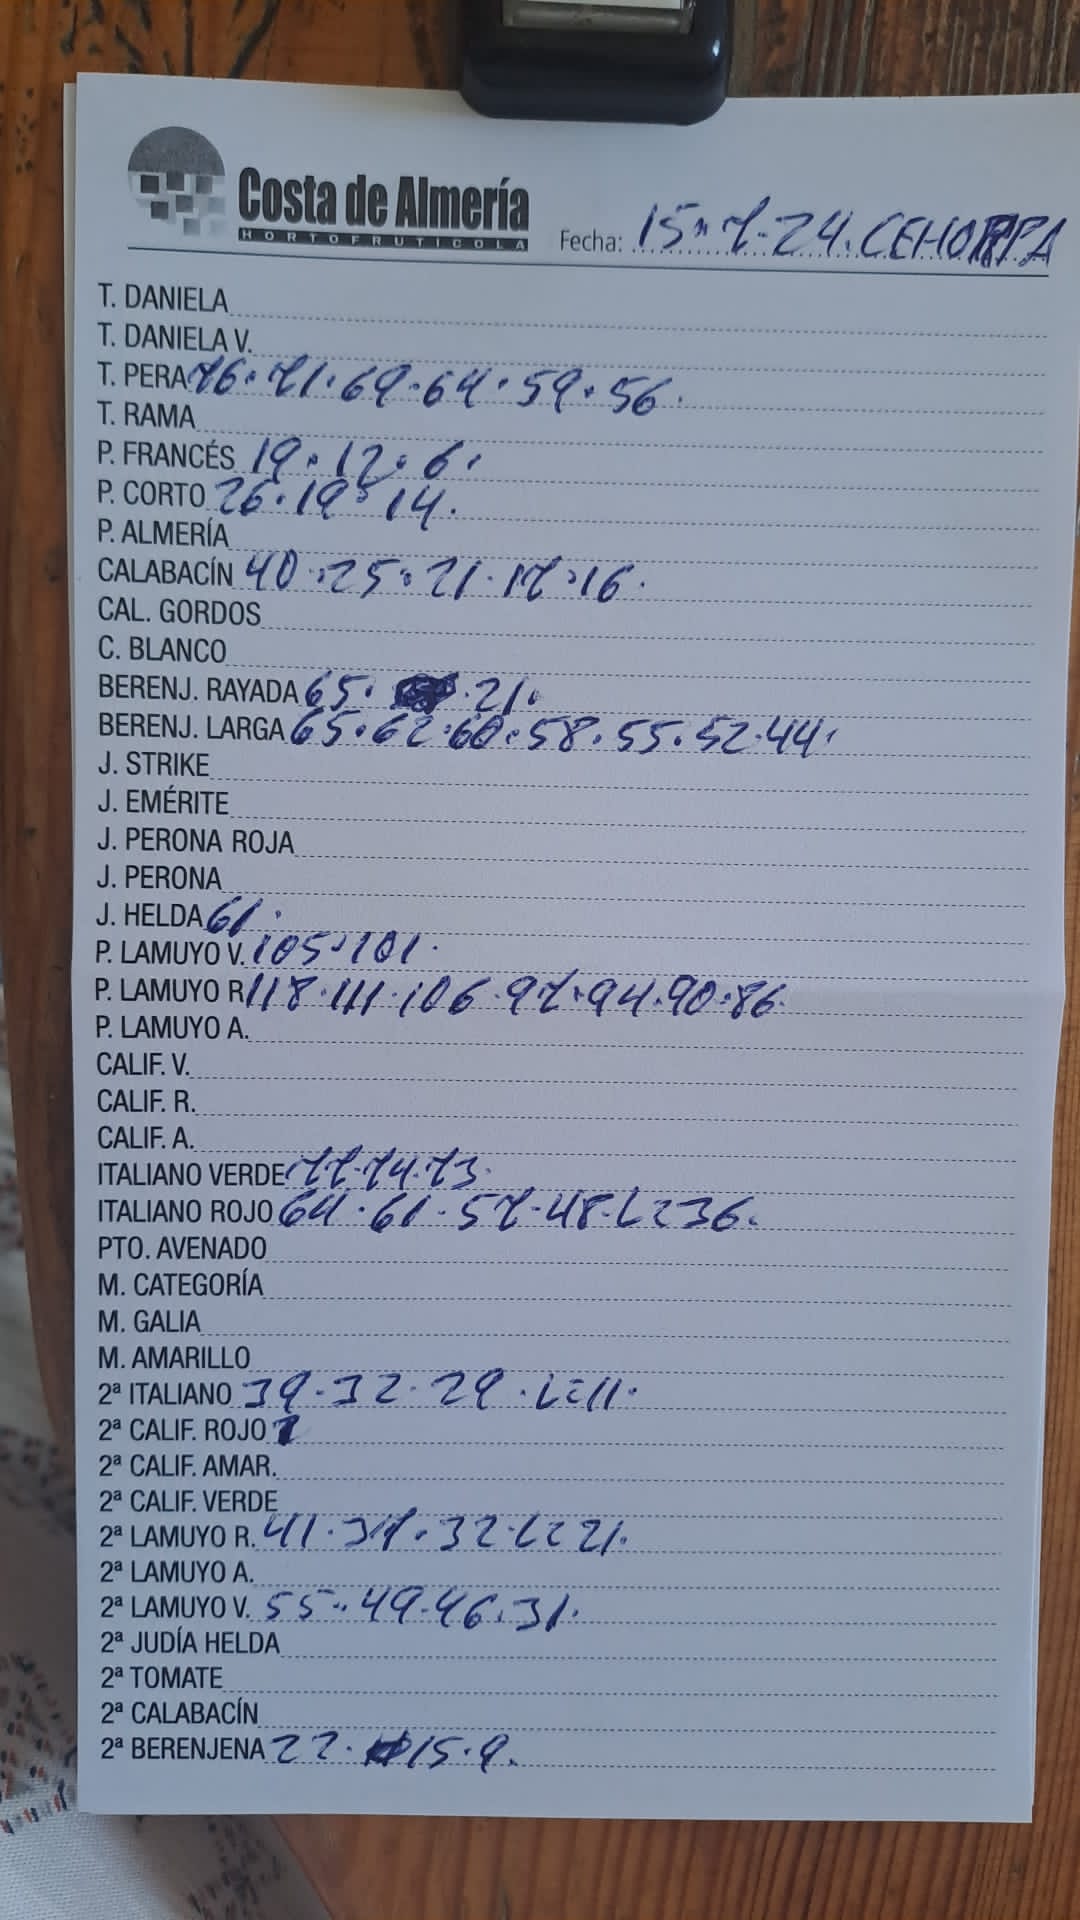 Costa de Almería
HORTOFRUTICOLA
Fecha: 15-7-24. CEHORPA
T. DANIELA
T. DANIELA V.
T. PERA 76. 71. 69. 64. 59. 56.
T. RAMA
P. FRANCÉS 19. 12. 6.
P. CORTO 26. 19. 14.
P. ALMERÍA
CALABACÍN 40. 25. 21. 17. 16.
CAL. GORDOS
C. BLANCO
BERENJ. RAYADA 65. 21.
BERENJ. LARGA 65. 62. 60. 58. 55. 52. 44.
J. STRIKE
J. EMÉRITE
J. PERONA ROJA
J. PERONA
J. HELDA 61.
P. LAMUYO V. 105. 101.
P. LAMUYO R 118. 111. 106. 97. 94. 90. 86.
P. LAMUYO A.
CALIF. V.
CALIF. R.
CALIF. A.
ITALIANO VERDE 77. 74. 73.
ITALIANO ROJO 64. 61. 57. 48. L=36.
PTO. AVENADO
M. CATEGORÍA
M. GALIA
M. AMARILLO
2ª ITALIANO 39. 32. 29. L=11.
2ª CALIF. ROJO
2ª CALIF. AMAR.
2ª CALIF. VERDE
2ª LAMUYO R. 41. 37. 32. L=21.
2ª LAMUYO A.
2ª LAMUYO V. 55. 49. 46. 31.
2ª JUDÍA HELDA
2ª TOMATE
2ª CALABACÍN
2ª BERENJENA 22. 15. 9.